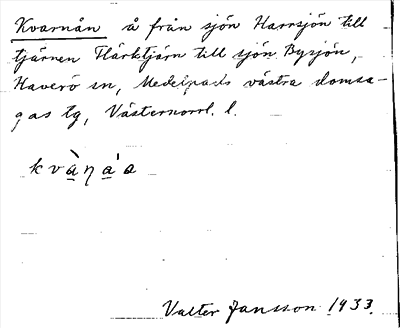 Kvarnån å från sjön Harrsjön till
tjärnen Flärktjärn till sjön Bysjön,
Haverö sn, Medelpads västra domsa-
gas tg, Västernorrl. l.
Valter Jansson 1933.